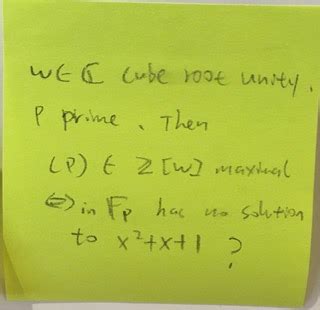 w ∈ ℂ cube root unity.
P prime. Then
(P) ∈ ℤ[w] maximal
⇔ in Fp has no solution
to x²+x+1 ?